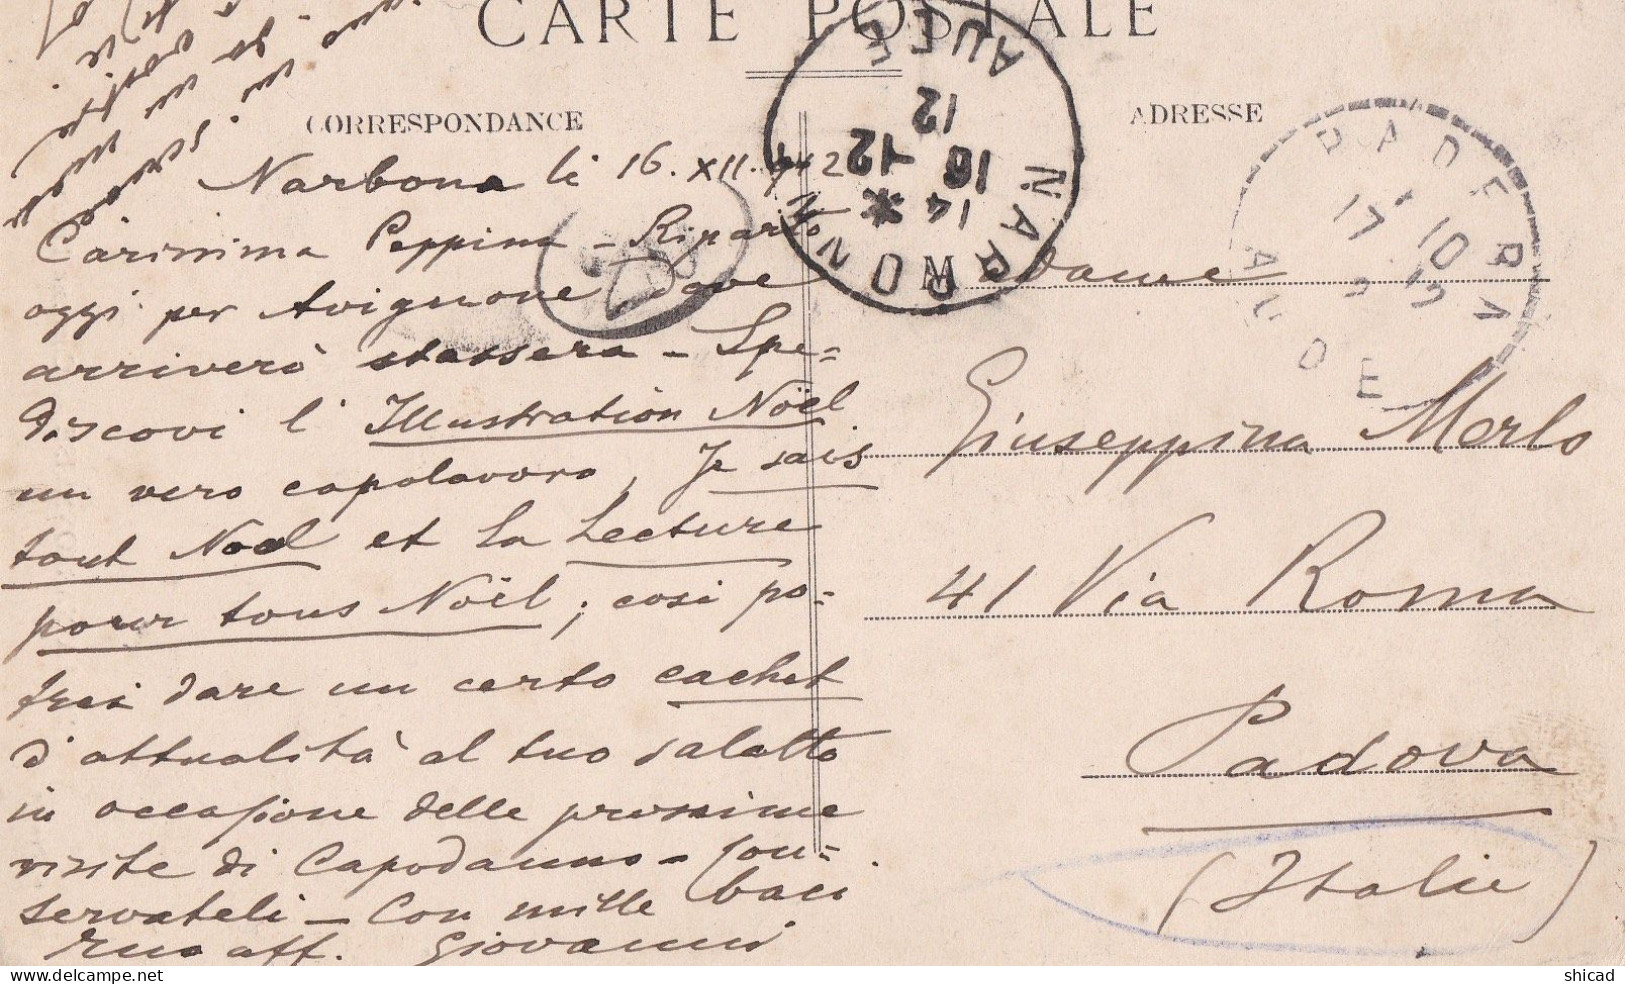 CARTE POSTALE
CORRESPONDANCE
Narbona li 16. XII. 912
Carissima Peppina – Riparto
oggi per Avignone dove
arriverò stassera – Spe=
discovi l' Illustration Noël
un vero capolavoro, Je sais
tout Noël et La Lecture
pour tous Noël; cosi po=
trei dare un certo cachet
d'attualità al tuo salotto
in occasione delle prossime
visite di Capodanno – Con=
servateli – Con mille baci
tuo aff. Giovanni
ADRESSE
Madame
Giuseppina Merlo
41 Via Roma
Padova
(Italie)
NARBONNE
AUDE
14 *
16 -12
12
PADERN
AUDE
17 10
shicad